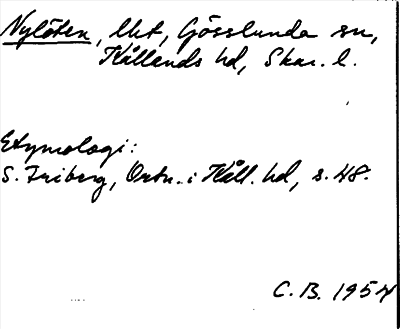 Nylöten, lht, Gösslunda sn,
Kållands hd, Skar. l.
Etymologi:
S. Friberg, Ortn. i Kåll. hd, s. 48.
C. B. 1954